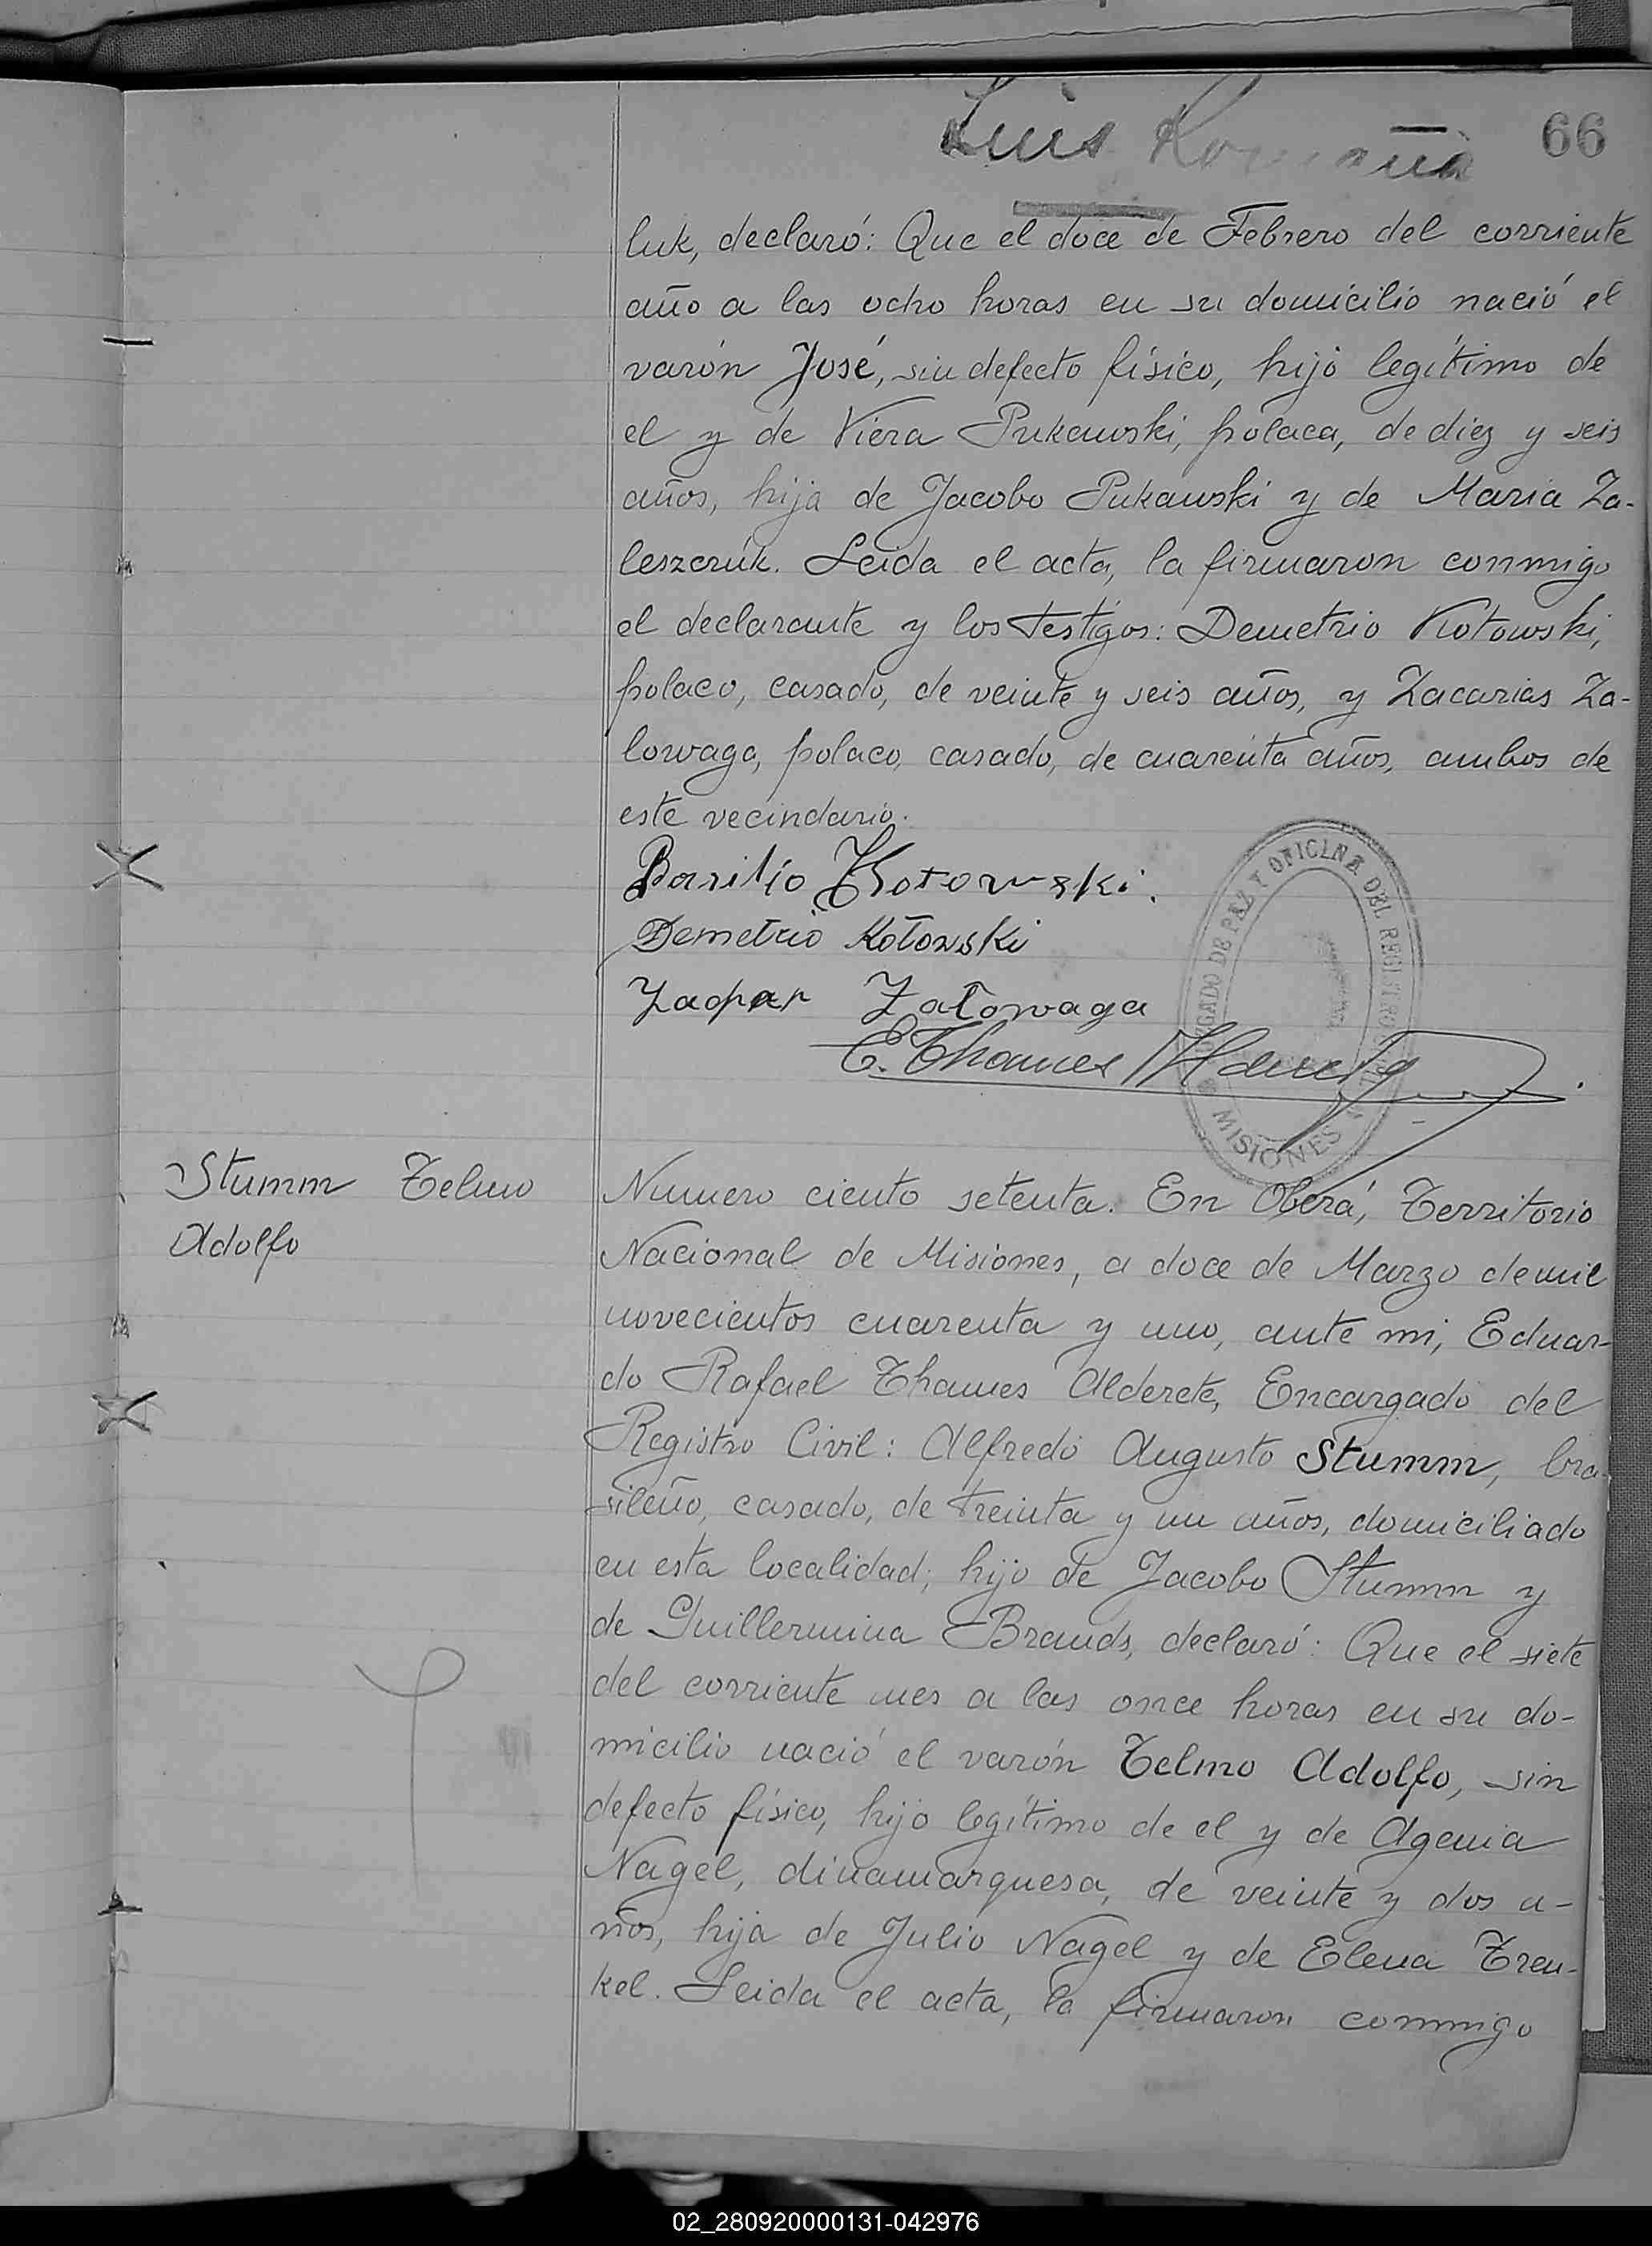 Luis
66
luk, declaró: Que el doce de Febrero del corriente
año a las ocho horas en su domicilio nació el
varón José, sin defecto físico, hijo legítimo de
el y de Viera Pukawski, polaca, de diez y seis
años, hija de Jacobo Pukawski y de Maria Za-
leszcruk. Leida el acta, la firmaron conmigo
el declarante y los testigos: Demetrio Kotowski,
polaco, casado, de veinte y seis años, y Zacarias Za-
lowaga, polaco, casado, de cuarenta años, ambos de
este vecindario.
Basilio Kotowski.
Demetrio Kotowski
Zatowaga
E. Thames Alderete
JUZGADO DE PAZ Y OFICINA DEL REGISTRO CIVIL
MISIONES
Stumm Telmo
Adolfo
Numero ciento setenta. En Oberá, Territorio
Nacional de Misiones, a doce de Marzo de mil
novecientos cuarenta y uno, ante mi, Eduar-
do Rafael Thames Alderete, Encargado del
Registro Civil: Alfredo Augusto Stumm, bra-
sileño, casado, de treinta y un años, domiciliado
en esta localidad; hijo de Jacobo Stumm y
de Guillermina Brands, declaró: Que el siete
del corriente mes a las once horas en su do-
micilio nació el varón Telmo Adolfo, sin
defecto físico, hijo legítimo de el y de Agenia
Nagel, dinamarquesa, de veinte y dos a-
ños, hija de Julio Nagel y de Elena Tren-
kel. Leida el acta, la firmaron conmigo
02_280920000131-042976